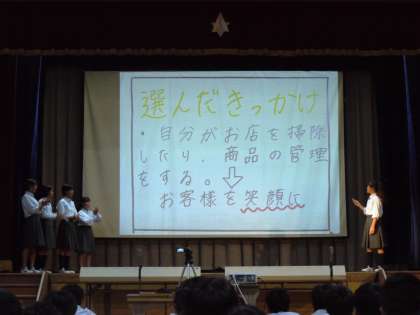 選んだきっかけ
・自分がお店を掃除
したり、商品の管理
をする。⇩
お客様を笑顔に